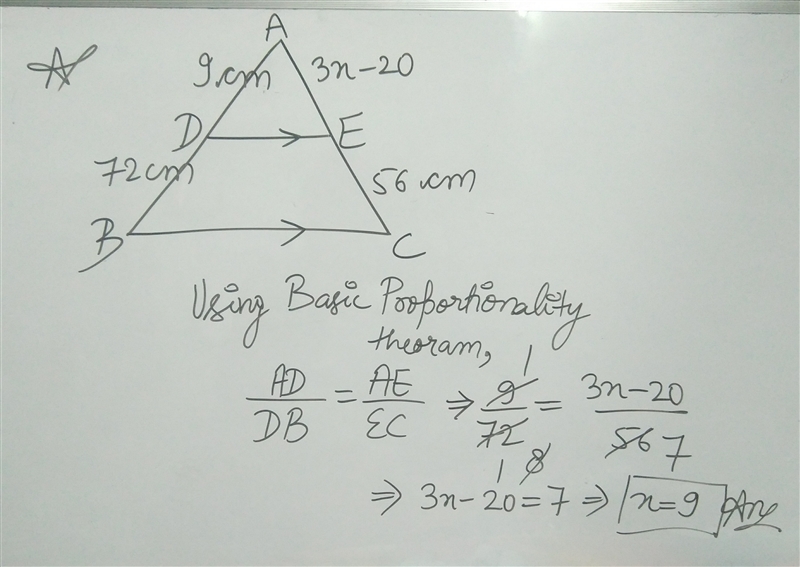 A
9.cm 3x-20
D E
72cm 56.cm
B C
Using Basic Proportionality
theoram,
AD/DB = AE/EC ⇒ 9/72 = 3x-20/56 1 8 7
⇒ 3x-20=7 ⇒ x=9 Ans
1